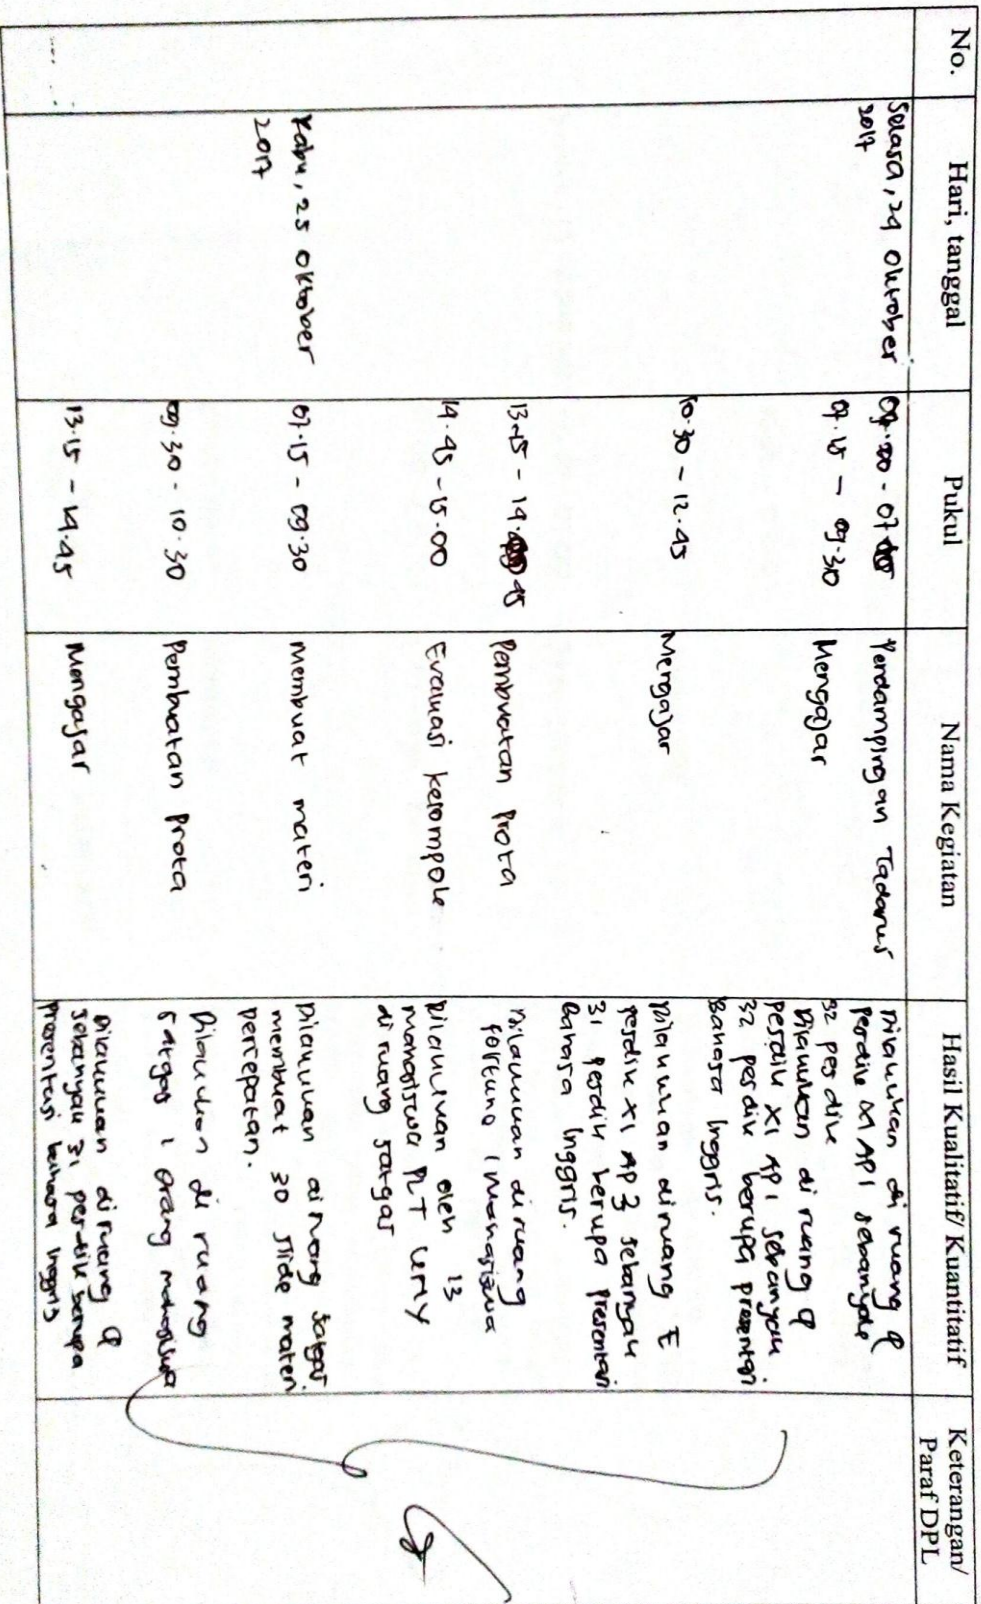 No.
Hari, tanggal
Pukul
Nama Kegiatan
Hasil Kualitatif/ Kuantitatif
Keterangan/
Paraf DPL
Selasa, 24 Oktober
2017
07.00 - 07.15
Pendampingan Tadarus
Dilakukan di ruang Q
Perdik XI AP1 sebanyak
32 perdik
07.15 - 09.30
Mengajar
Dilakukan di ruang Q
perdik XI AP1 sebanyak
32 perdik berupa presentasi
Bahasa Inggris.
10.30 - 12.45
Mengajar
Dilakukan diruang E
perdik XI AP3 sebanyak
31 perdik berupa presentasi
Bahasa Inggris.
13.15 - 14.45
Pembuatan Prota
Dilakukan diruang
1 mahasiswa
14.45 - 15.00
Evaluasi kelompok
Dilakukan oleh 13
mahasiswa PLT UNY
di ruang satgas
Rabu, 25 Oktober
2017
07.15 - 09.30
Membuat materi
Dilakukan diruang satgas
membuat 30 slide materi
percepatan.
09.30 - 10.30
Pembuatan Prota
Dilakukan di ruang
satgas 1 orang mahasiswa
13.15 - 14.45
Mengajar
Dilakukan diruang Q
sebanyak 31 perdik berupa
presentasi bahasa Inggris